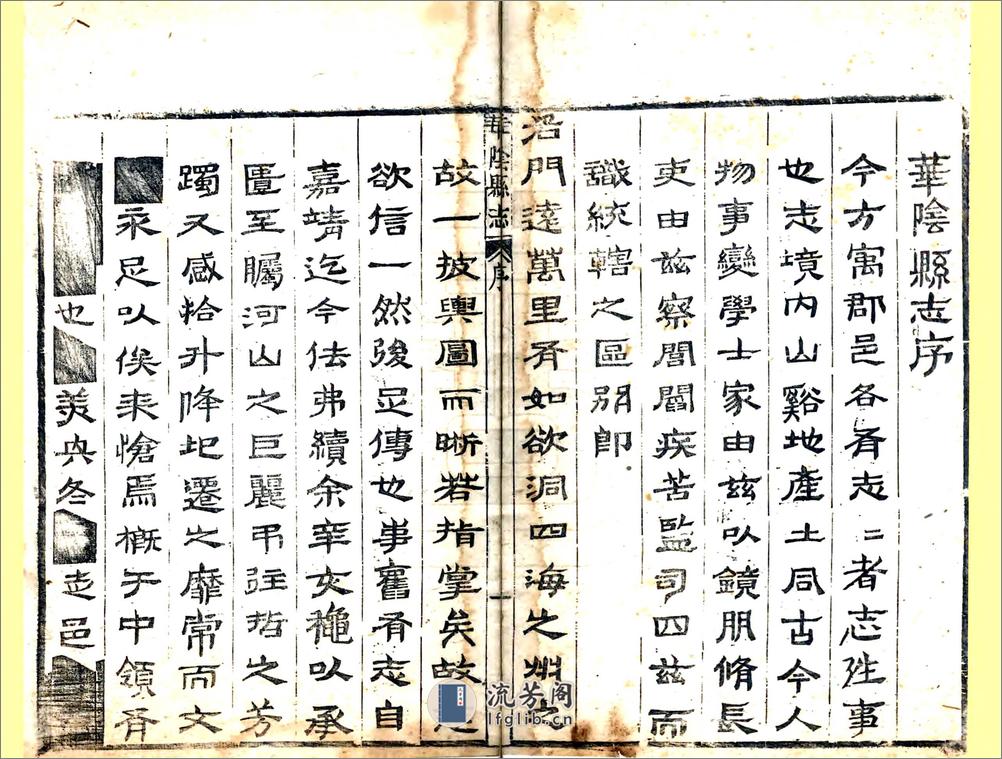 華陰縣志序
今方寓郡邑各有志志者志往事
也志境内山谿地產土同古今人
物事變學士家由玆以鏡朋脩長
吏由玆察閭閻疾苦監司四玆而
識統轄之區别即
沿門遠萬里有如欲洞四海之州之
華陰縣志 序 一
故一披輿圖而晰若指掌矣故
欲信一然後足傳也事舊有志自
嘉靖迄今佉弗續余宰以承
匱至矚河山之巨麗弔往哲之芳
躅又感於升降地遷之靡常而文
永足以俟来愴焉概于中領有
也 冬 志邑
流芳阁
lfglib.cn